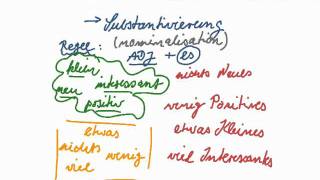 → Substantivierung
Regel: (nominalisation)
ADJ + es
klein
neu interessant
positiv
nichts Neues
wenig Positives
etwas Kleines
viel Interessantes
etwas
nichts wenig
viel